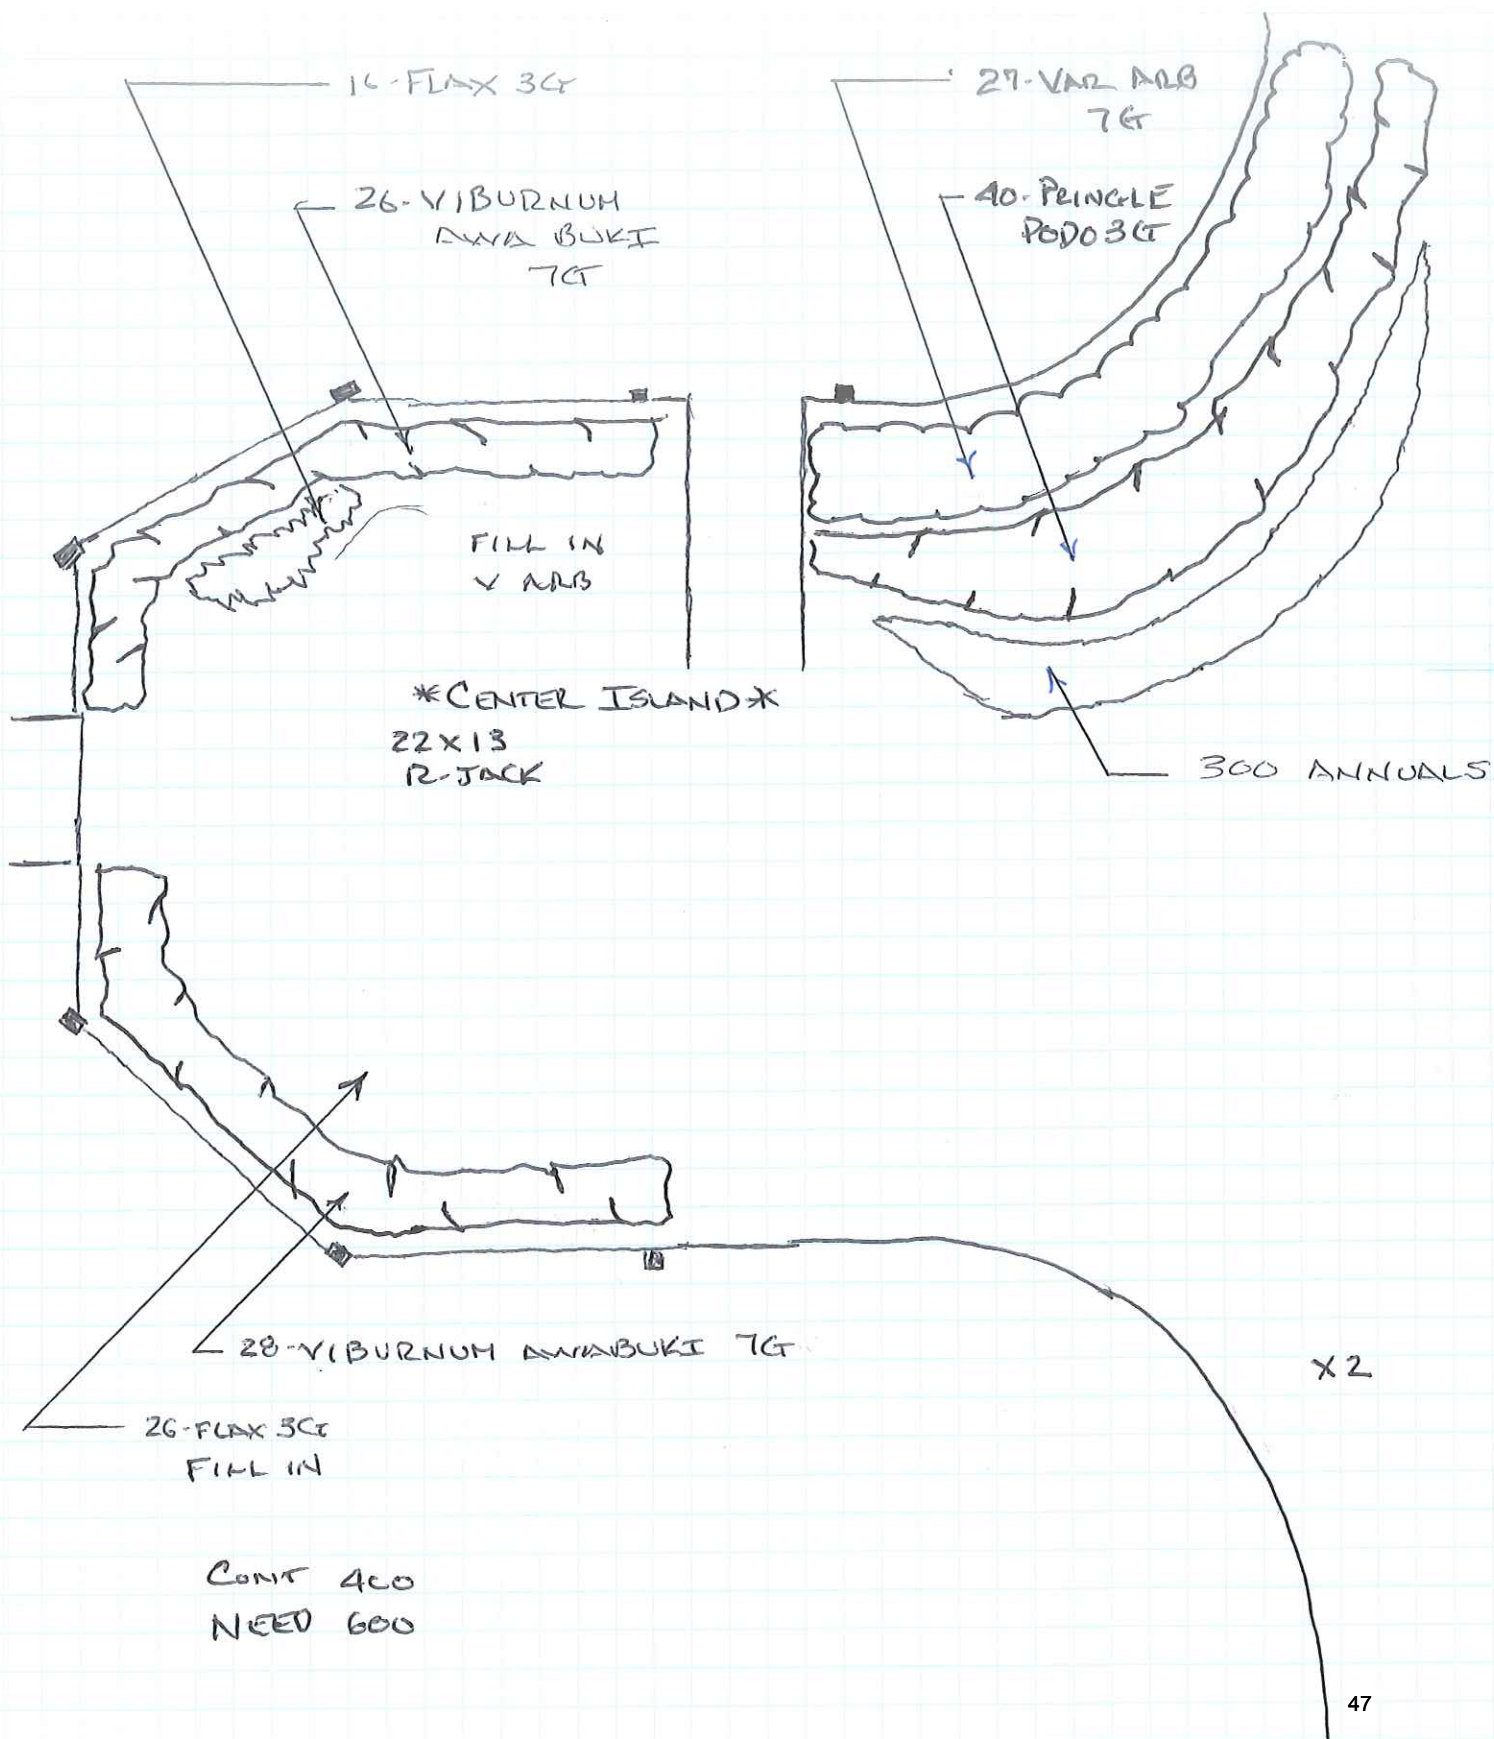 16-FLAX 3G
27-VAR ARB
7G
26-VIBURNUM
AWA BUKI
7G
40-PRINGLE
PODO 3G
FILL IN
V ARB
*CENTER ISLAND*
22X13
R-JACK
300 ANNUALS
28-VIBURNUM AWABUKI 7G
X2
26-FLAX 3G
FILL IN
CONT 400
NEED 600
47